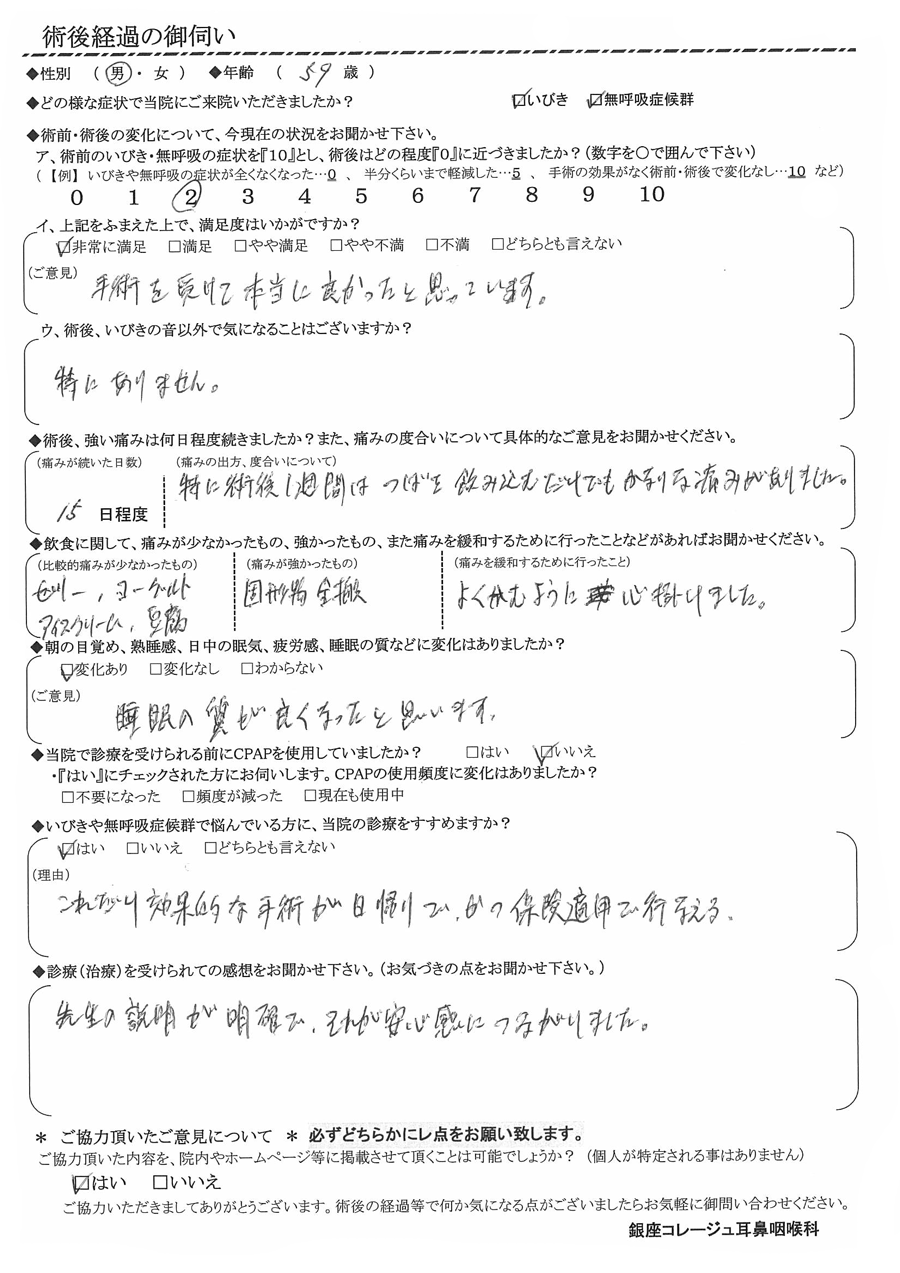 術後経過の御伺い
◆性別 ( 男 ・ 女 ) ◆年齢 ( 59 歳 )
◆どの様な症状で当院にご来院いただきましたか? ☑いびき ☑無呼吸症候群
◆術前・術後の変化について、今現在の状況をお聞かせ下さい。
ア、術前のいびき・無呼吸の症状を『10』とし、術後はどの程度『0』に近づきましたか?(数字を○で囲んで下さい)
(【例】 いびきや無呼吸の症状が全くなくなった…0 、 半分くらいまで軽減した…5 、 手術の効果がなく術前・術後で変化なし…10 など)
0 1 2 3 4 5 6 7 8 9 10
イ、上記をふまえた上で、満足度はいかがですか?
☑非常に満足 □満足 □やや満足 □やや不満 □不満 □どちらとも言えない
(ご意見)
手術を受けて本当に良かったと思っています。
ウ、術後、いびきの音以外で気になることはございますか?
特にありません。
◆術後、強い痛みは何日程度続きましたか?また、痛みの度合いについて具体的なご意見をお聞かせください。
(痛みが続いた日数) (痛みの出方、度合いについて)
特に術後1週間は つばを飲み込むだけでもかなりな痛みがありました。
15 日程度
◆飲食に関して、痛みが少なかったもの、強かったもの、また痛みを緩和するために行ったことなどがあればお聞かせください。
(比較的痛みが少なかったもの) (痛みが強かったもの) (痛みを緩和するために行ったこと)
ゼリー, ヨーグルト 固形物全般 よくかむように心掛けました。
アイスクリーム, 豆腐
◆朝の目覚め、熟睡感、日中の眠気、疲労感、睡眠の質などに変化はありましたか?
☑変化あり □変化なし □わからない
(ご意見)
睡眠の質が良くなったと思います。
◆当院で診療を受けられる前にCPAPを使用していましたか? □はい ☑いいえ
・『はい』にチェックされた方にお伺いします。CPAPの使用頻度に変化はありましたか?
□不要になった □頻度が減った □現在も使用中
◆いびきや無呼吸症候群で悩んでいる方に、当院の診療をすすめますか?
☑はい □いいえ □どちらとも言えない
(理由)
これだけ効果的な手術が日帰りで、かつ保険適用で行なえる。
◆診療(治療)を受けられての感想をお聞かせ下さい。(お気づきの点をお聞かせ下さい。)
先生の説明が明確で、それが安心感につながりました。
* ご協力頂いたご意見について * 必ずどちらかにレ点をお願い致します。
ご協力頂いた内容を、院内やホームページ等に掲載させて頂くことは可能でしょうか? (個人が特定される事はありません)
☑はい □いいえ
ご協力いただきましてありがとうございます。術後の経過等で何か気になる点がございましたらお気軽に御問い合わせください。
銀座コレージュ耳鼻咽喉科